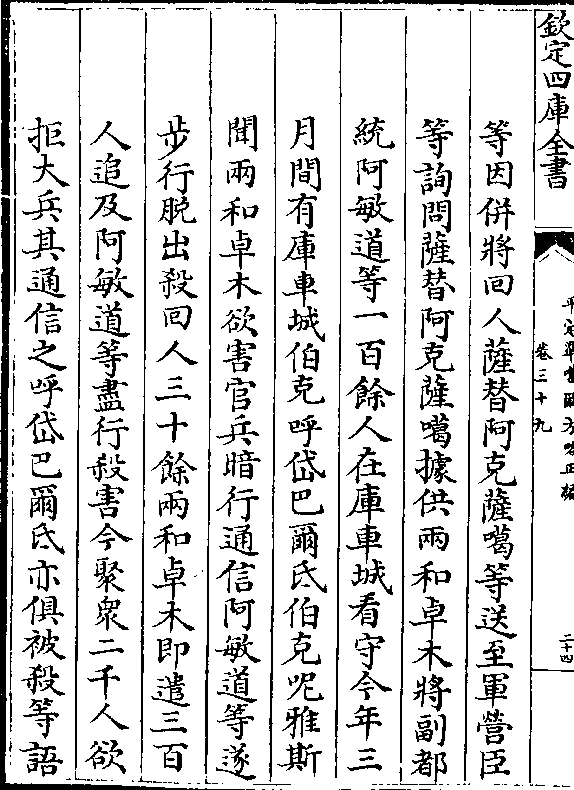 欽定四庫全書
卷三十九
二十四
等因併將回人薩替阿克薩噶等送至軍營臣
等詢問薩替阿克薩噶據供兩和卓木將副都
統阿敏道等一百餘人在庫車城看守今年三
月間有庫車城伯克呼岱巴爾氐伯克呢雅斯
聞兩和卓木欲害官兵暗行通信阿敏道等遂
步行脱出殺回人三十餘兩和卓木即遣三百
人追及阿敏道等盡行殺害今聚衆二千人欲
拒大兵其通信之呼岱巴爾氐亦俱被殺等語